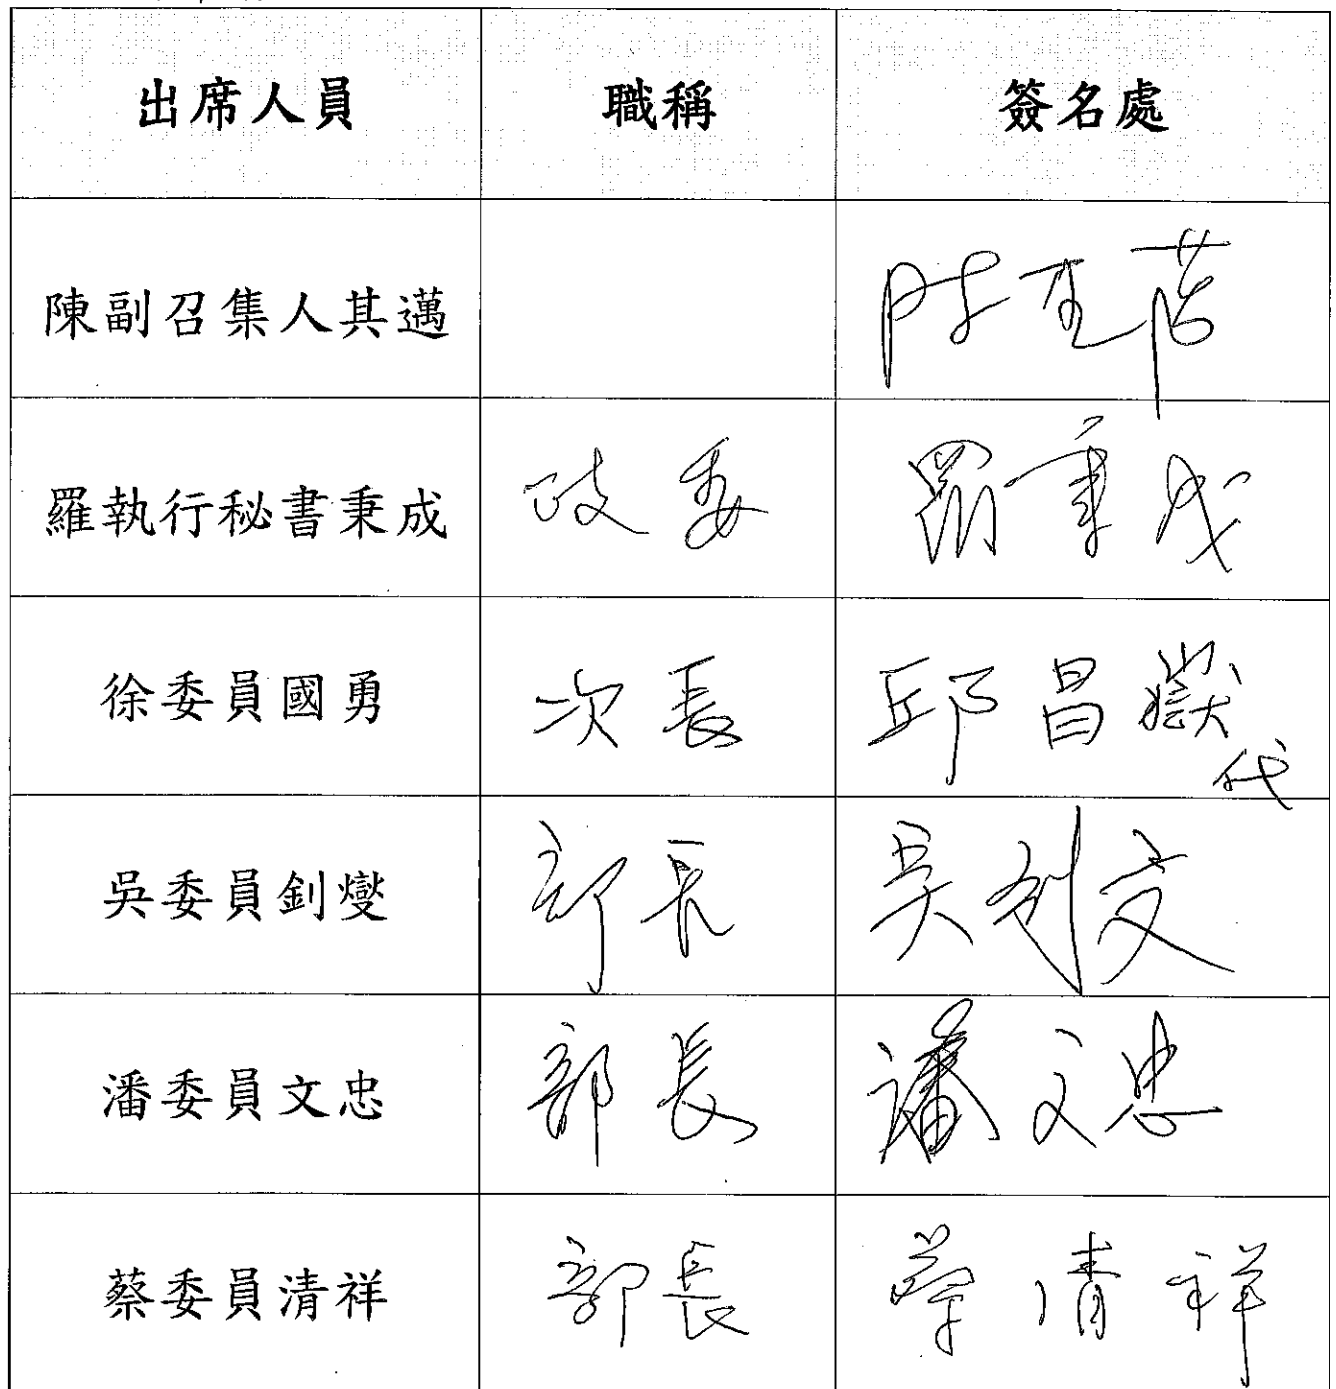 出席人員 職稱 簽名處
陳副召集人其邁 陳其邁
羅執行秘書秉成 政委 羅秉成
徐委員國勇 次長 邱昌嶽
代
吳委員釗燮 部長 吳釗燮
潘委員文忠 部長 潘文忠
蔡委員清祥 部長 蔡清祥